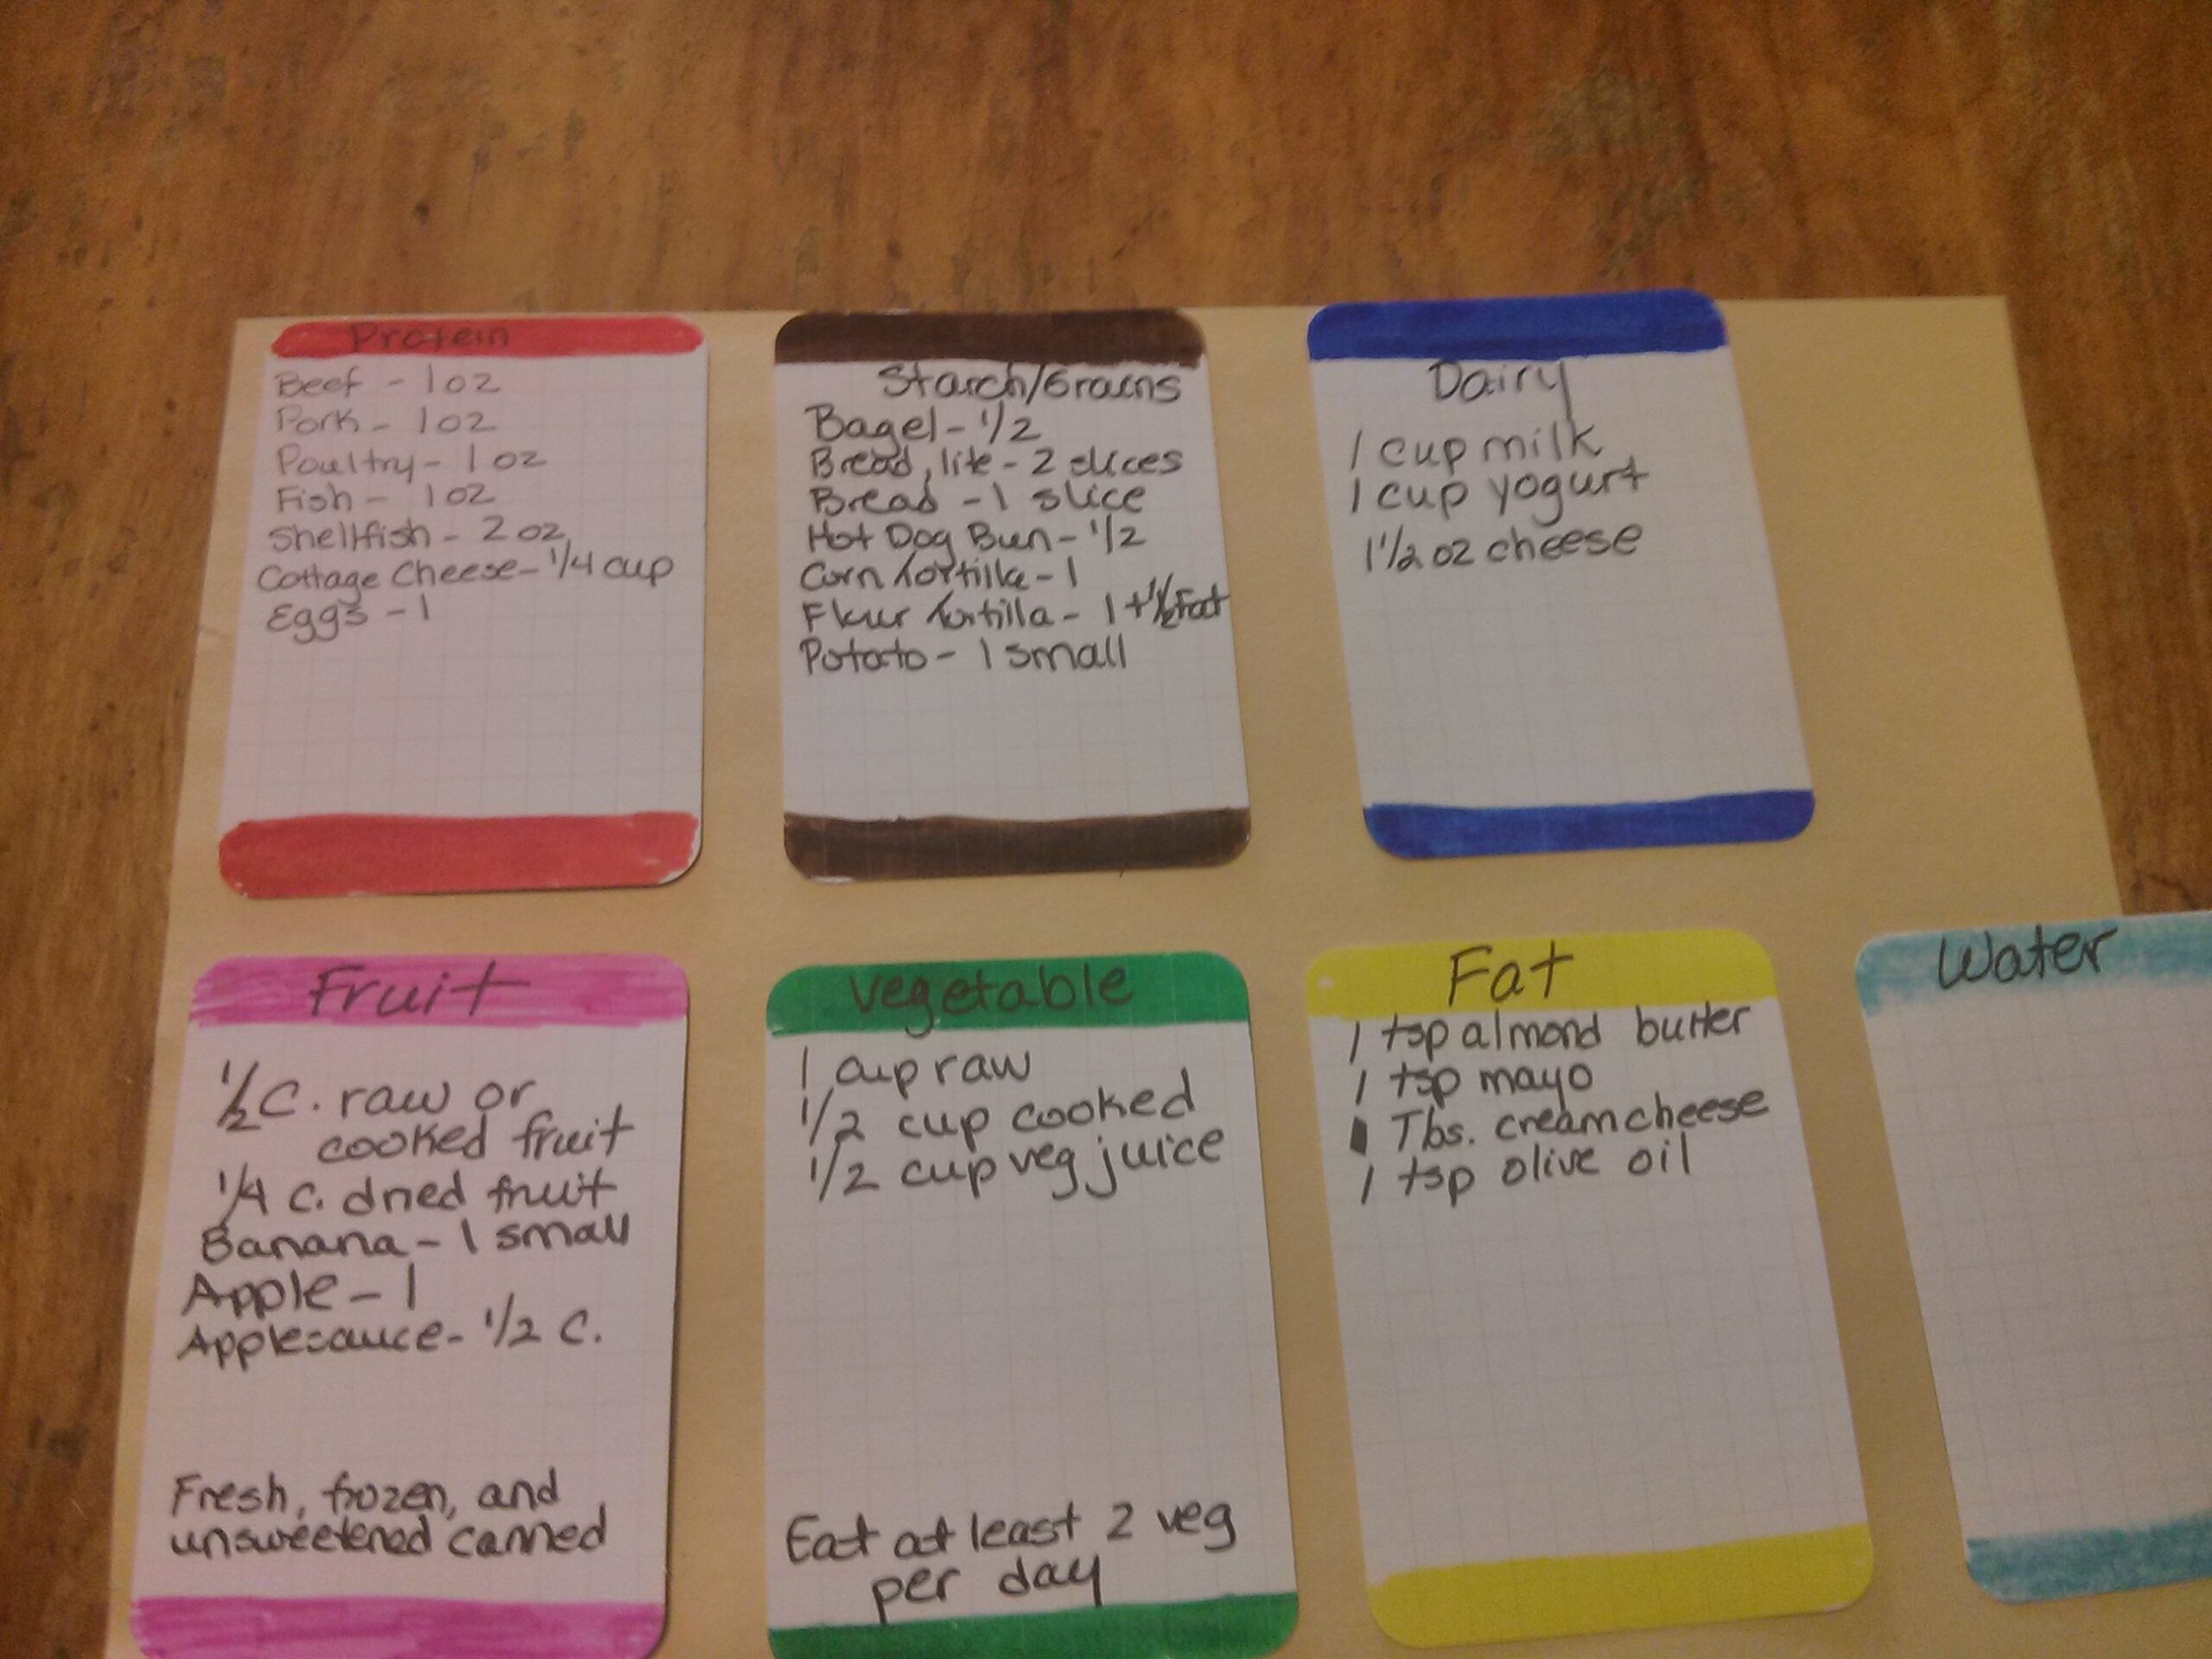 Protein
Beef - 1 oz
Pork - 1 oz
Poultry - 1 oz
Fish - 1 oz
Shellfish - 2 oz
Cottage Cheese - 1/4 cup
Eggs - 1
Starch/Grains
Bagel - 1/2
Bread, lite - 2 slices
Bread - 1 slice
Hot Dog Bun - 1/2
Corn tortilla - 1
Flour tortilla - 1 + 1/2 Fat
Potato - 1 small
Dairy
1 cup milk
1 cup yogurt
1 1/2 oz cheese
Fruit
1/2 C. raw or
cooked fruit
1/4 c. dried fruit
Banana - 1 small
Apple - 1
Applesauce - 1/2 C.
Fresh, frozen, and
unsweetened canned
vegetable
1 cup raw
1/2 cup cooked
1/2 cup veg juice
Eat at least 2 veg
per day
Fat
1 tsp almond butter
1 tsp mayo
Tbs. cream cheese
1 tsp olive oil
Water